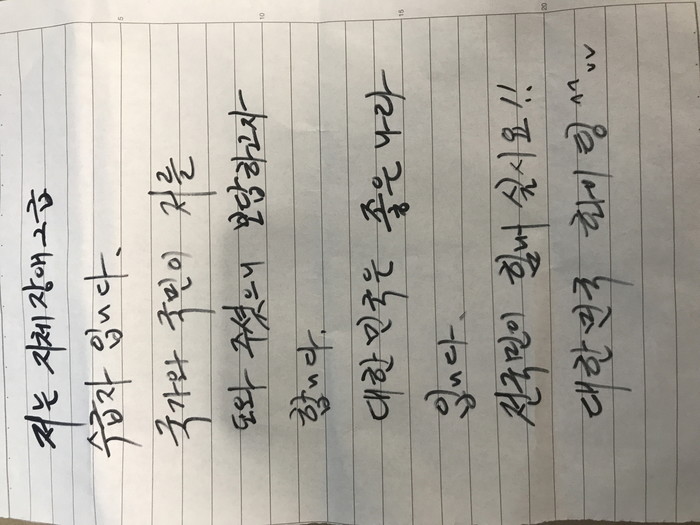 저는 지체장애 2급
수급자 입니다.
국가와 국민이 저를
도와 주셧으니 보답하고자
합니다.
대한민국은 좋은 나라
입니다.
전국민이 힘내 십시요!!
대한민국 화이팅 ^^ vv
5
10
15
20